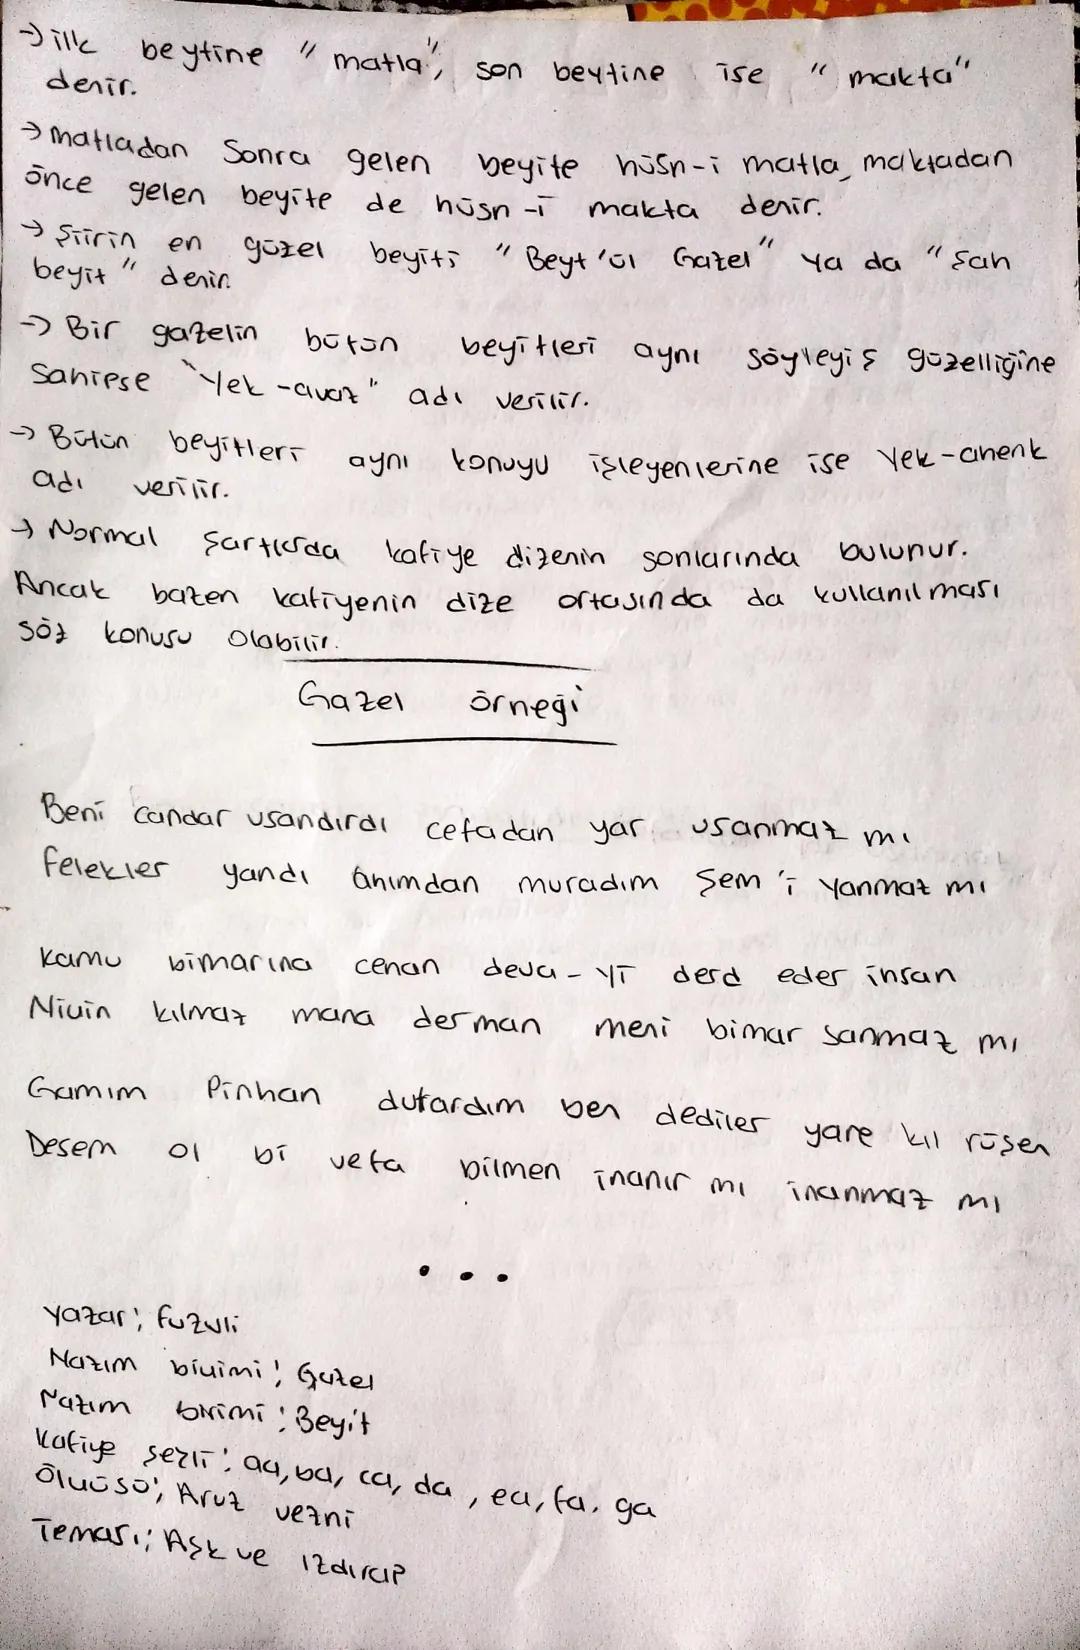 → ilk beytine "matla", son beytine ise "makta"
denir.
→ matladan Sonra gelen beyite hüsn-i matla, maktadan
önce gelen beyite de hüsn-i makta denir.
→ Şiirin en güzel beyiti "Beyt'ül Gazel" ya da "Şah
beyit" denir.
→ Bir gazelin bütün beyitleri aynı söyleyiş güzelliğine
Sahipse "Yek-avaz" adı verilir.
→ Bütün beyitleri aynı konuyu işleyenlerine ise Yek-ahenk
adı verilir.
→ Normal Şartlarda kafiye dizenin sonlarında bulunur.
Ancak bazen kafiyenin dize ortasında da kullanılması
söz konusu olabilir.
Gazel örneği
Beni candar usandırdı cefadan yar usanmaz mı
felekler yandı ahımdan muradım Şem'i yanmaz mı
kamu bimarına cenan deva-yi derd eder insan
Niçin kılmaz mana derman meni bimar sanmaz mı
Gamım Pinhan dutardım ben dediler yare kıl rüşen
Desem ol bi vefa bilmen inanır mı inanmaz mı
...
yazar; fuzuli
Nazım biçimi; Gazel
Nazım birimi: Beyit
kafiye şezli: aa, ba, ca, da, ea, fa, ga
Ölçüsü; Aruz vezni
Teması; Aşk ve ızdırap